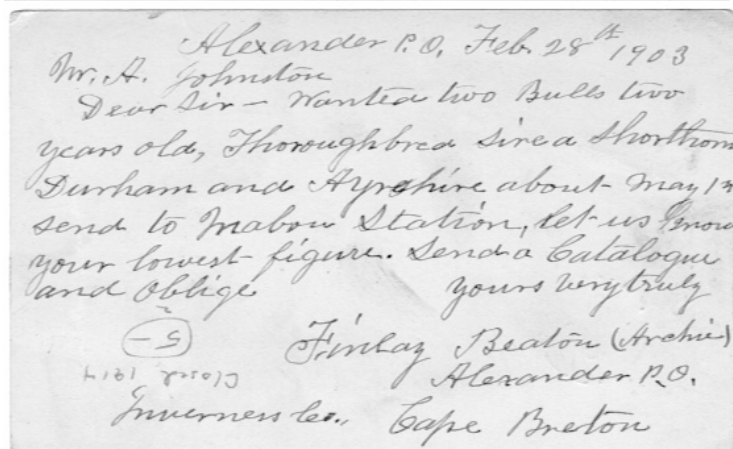 Alexander P.O. Feb. 28th 1903
Mr. A. Johnston
Dear Sir – Wanted two Bulls two
years old, Thoroughbred Sired Shorthorn
Durham and Ayrshire about May 1st
send to Mabou Station, let us know
your lowest figure. Send a Catalogue
and oblige yours very truly
Finlay Beaton (Archie)
Alexander P.O.
Inverness Co., Cape Breton
5 –
Closed 1914